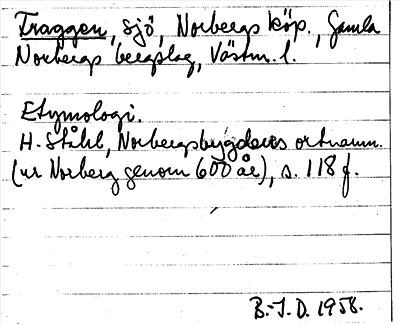 Traggen, sjö, Norbergs köp., Gamla
Norbergs bergslag, Västm. l.
Etymologi.
H. Ståhl, Norbergsbygdens ortnamn.
(ur Norberg genom 600 år), s. 118 f.
B.-I. D. 1958.